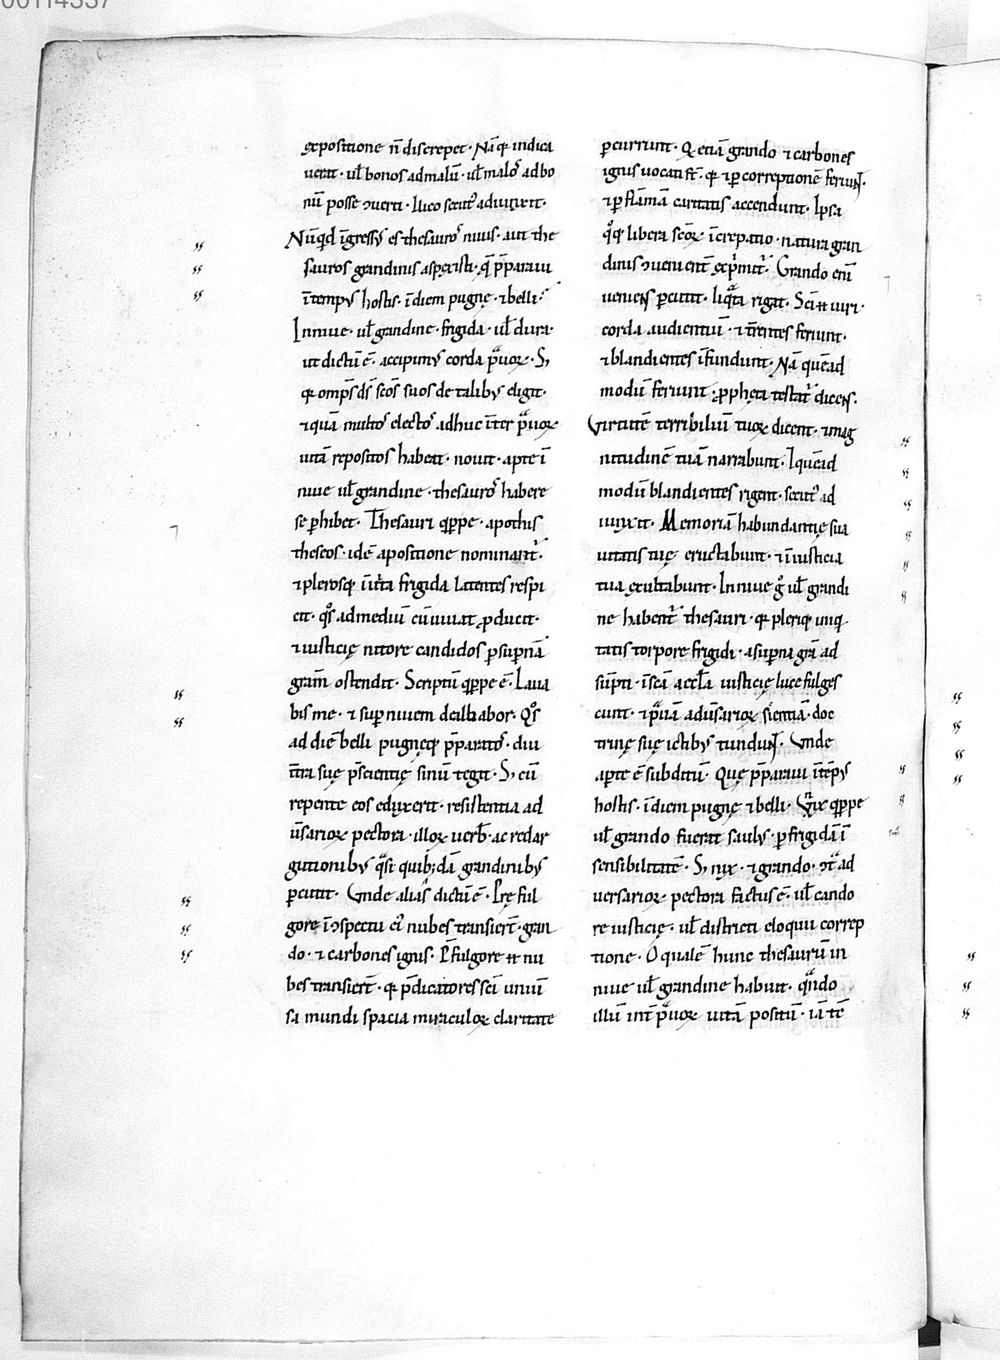 expositione n̄ discrepet · Nā qꝫ indica
uerat · uł bonos ad malū · uł malos ad bo
nū posse ꝯuerti · Ilico secut᷒ adiunxit ·
Nūqid īgress᷒ es thesauros niuis · aut the
sauros grandinis aspexisti · q̄ p̄paraui
ī temp᷒ hostis · ī diem pugnę · ⁊ belli ·
In niue · uł grandine · frigida · uł dura ·
ut dictū ē · accipim᷒ corda prauoꝝ · S;
qꝫ omps ds̄ scōs suos de talib᷒ eligit ·
⁊ quā multos electos adhuc īter prauoꝝ
uitā repositos habeat · nouit · apte ī
niue uł grandine · thesauros habere
se ꝑhibet · Thesauri qꝓpe · apothis
theseos · idē a positione nominant᷒ ·
⁊ plerosqꝫ ī uita frigida latentes respi
cit · qos ad mediū cū iuuat ꝓducit ·
⁊ iusticię nitore candidos ꝑ supnā
gram̄ ostendit · Scriptū qꝓpe ē · Laua
bis me · ⁊ super niuem dealbabor · Qos
ad diē belli pugnęqꝫ p̄paratos · diu
īt̄ra suę p̄scientię sinū tegit · S; cū
repente eos eduxerit · resistentia ad
ūsarioꝝ pectora · illoꝝ uerb᷒ · ac redar
gutionib᷒ q̄si quib;dā grandinib᷒
ꝑcutit · Vnde alias dictū ē · Prę ful
gore ī ꝯspectu ei᷒ nubes transiert̄ · gran
do · ⁊ carbones ignis · P̄ fulgore ħ nu
bes transiert̄ · qꝫ p̄dicatores sc̄i uniuī
sa mundi spacia miraculoꝝ claritate
ꝑcurrunt · Q etiā grando ⁊ carbones
ignis uocati st̄ · qꝫ ⁊ ꝑ correptionē feriunt ·
⁊ ꝑ flāmā caritatis accendunt · Ipsa
qoqꝫ libera scōꝝ īcrepatio · natura gran
dinis ꝯuenient̄ exprimit᷒ · Grando enī
ueniens ꝑcutit · liqata rigat · Sc̄i ħ uiri ·
corda audientiū · ⁊ t̄rentes feriunt ·
⁊ blandientes īfundunt · Nā quēad
modū feriunt · ꝓpheta testat᷒ dicens ·
Virtutē terribiliū tuoꝝ dicent · ⁊ mag
nitudinē tuā narrabunt · I quēad
modū blandientes rigent · secut᷒ ad
iunxit · Memoriā habundantię sua
uitatis tuę eructabunt · ⁊ ī iusticia
tua exultabunt · In niue g̊ uł grandi
ne habent᷒ thesauri · qꝫ pleriqꝫ iniqi
tatis torpore frigidi · a supna gr̄a ad
sūpti · ī scā accl̄a iusticię luce fulges
cunt · ⁊ prauā adūsarioꝝ sientiā · doc
trinę suę ictib᷒ tundunt · Vnde
apte ē subditū · Quę p̄paraui ī tēp᷒
hostis · ī diem pugnę ⁊ belli · Nix qꝓpe
uł grando fuerat saulus · ꝑ frigidā ī
sensibilitatē · S; nix · ⁊ grando · ꝯt̄ ad
uersarioꝝ pectora factus ē · uł cando
re iusticię · uł districti eloquii correp
tione · O qualē hunc thesaurū in
niue uł grandine habuit · qando
illū int̄ prauoꝝ uitā positū · iā tē